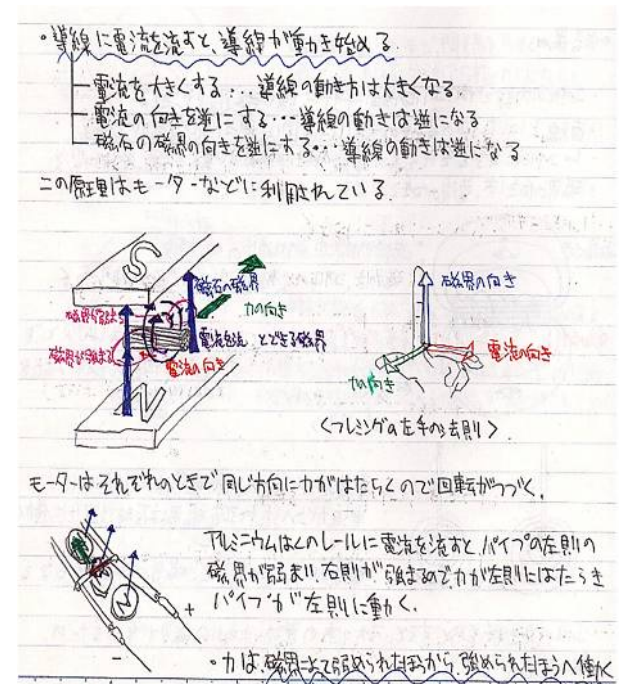 ・導線に電流を流すと、導線が動き始める。
電流を大きくする…導線の動き方は大きくなる
電流の向きを逆にする…導線の動きは逆になる
磁石の磁界の向きを逆にする…導線の動きは逆になる
この原理はモーターなどに利用されている。
S
磁石の磁界
力の向き
磁界が弱まる
磁界が強まる
電流を流 とできる磁界
電流の向き
N
磁界の向き
電流の向き
力の向き
〈フレミングの左手の法則〉
モーターはそれぞれのときで同じ方向に力がはたらくので回転がつづく。
アルミニウムはくのレールに電流を流すと、パイプの左側の
磁界が弱まり、右側が強まるので、力が左側にはたらき
パイプが左側に動く。
N
+
-
・力は、磁界によって弱められたほうから、強められたほうへ働く